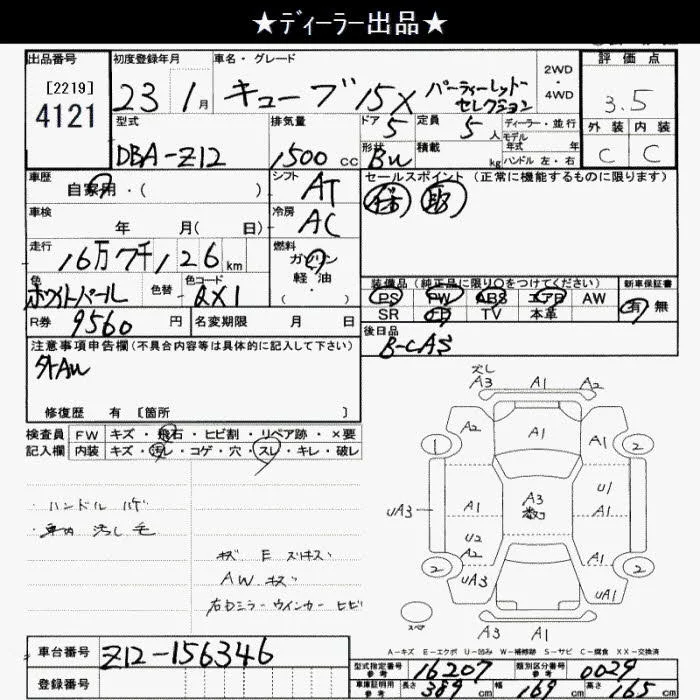 ★ディーラー出品★
出品番号
[2219]
4121
初度登録年月
23 1月
車名・グレード
キューブ 15X パーティーレッド セレクション
2WD
・
4WD
評価点
3.5
外装 内装
C C
型式
DBA-Z12
排気量
1500 cc
ドア
5
定員
5人
ディーラー・並行
モデル
年式 年
ハンドル 左・右
形状
積載 kg
車歴
自家用・( )
シフト
AT
セールスポイント(正常に機能するものに限ります)
車検
年 月( 日)
冷房
AC
走行
16万7千126km
燃料
ガソリン
軽油
( ・ )
色
ホワイトパール
色替
色コード
QX1
装備品(純正品に限り○をつけてください)
新車保証書
PS PW ABS エアB AW
有 無
SR TV 本革
R券 9560円
名変期限 月 日
後日品
B-CAS
注意事項申告欄(不具合内容等は具体的に記入して下さい)
外AW
修復歴 有 [箇所 ]
検査員 FW キズ・飛石・ヒビ割・リペア跡・×要
記入欄 内装 キズ・汚れ・コゲ・穴・スレ・キレ・破レ
・ハンドル ハゲ
・車内 汚し毛
AW キズ
右ドミラーウインカー ヒビ
A3 A1 A2
A2 A1
1 2
U1
UA3 A1 A3 A1
U2
A2
2 UA3 A1 UA1 2
A3 A1
スペア
A-キズ E-エクボ U-凹み W-補修跡 S-サビ C-腐食 XX-交換済
車台番号 Z12-156346
登録番号
型式指定番号 参考 16207
類別区分番号 参考 0029
車庫証明用 参考 長さ 389cm 幅 169cm 高さ 165cm